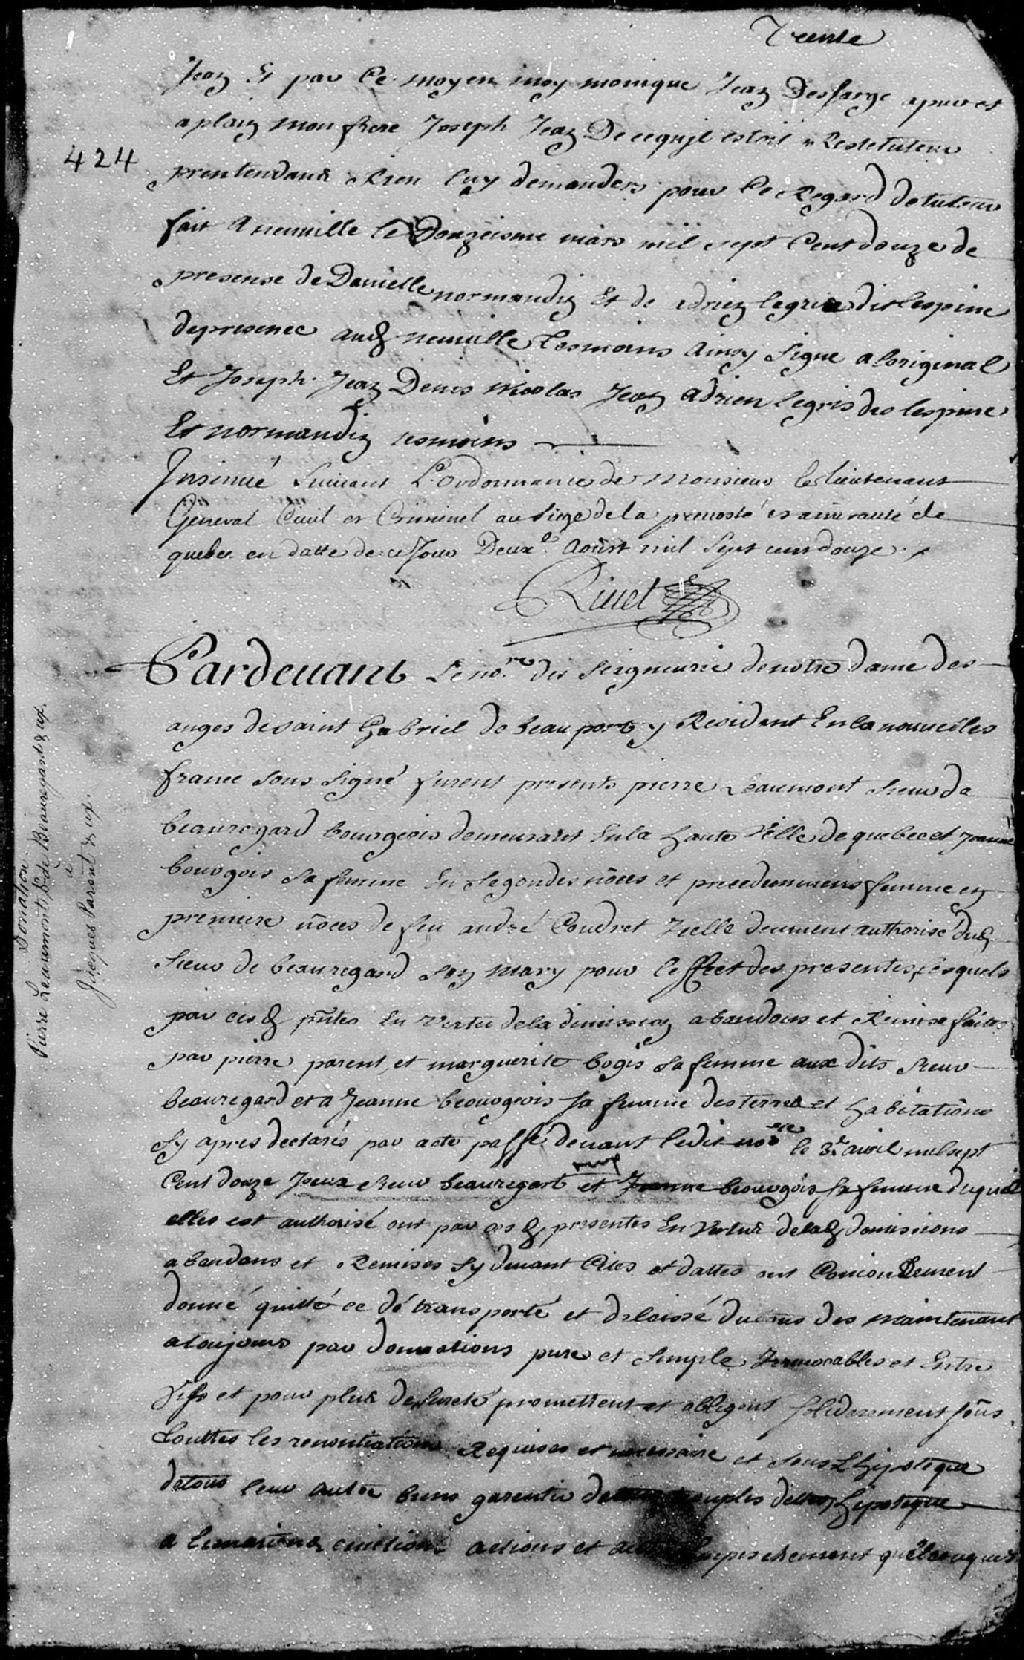 Trente
Jean Et par Ce moyen moy monique Jean Desfarge
a plain mon frere Joseph Jean De cequil
424
prentendant Rien luy demander pour le Regard de tuteur
fait A neuville le Douzeisme mars mil sept Cent douze de
presense de Danielle normandin Et de adrien legris dit lespine
de presence aud neuville tesmoins Ainsy Signe a loriginal
Et Joseph Jean Denis Nicolas Jean adrien legris des lespine
Et normandin tesmoins
Insinué Suivant L'ordonnance de Monsieur le Lieutenant
General Civil et Criminel au siege de la prevosté et amirauté de
quebec en datte de ce Jour Deuxe Aoust mil Sept cens douze
Rivet
Pardevant Le nore des seigneurie de notre dame des
anges de saint Gabriel de beauport y Residant En la nouvelles
france sous signé furent presents pierre Leaumont sieur de
beauregard bourgeois demeurant En la haute Ville de quebec et Jeanne
bourgois sa femme En segondes nôces et precedemment femme en
premiere nôces de feu andré Coudret Icelle deument authorisé dud
sieur de beauregard son mary pour l'effect des presentes lesquels
par ces d. pntes En vertu de la dimission abandons et Remise faites
par pierre parent et marguerite bogis sa femme aux dits sieur
beauregard et a Jeanne beourgois sa femme des terre et habitations
cy apres declarés par acte passé devant ledit nore le 3e avril mil sept
Cent douze Iceux sieur beauregart et Jeanne beourgois sa femme duquel
elles est authorisé ont par ces d. presentes En vertue de lad demissions
abandons et Remises cy devant Cites et dattes ont Conjointement
donné quitté cedé transporté et delaissé du tous des maintenant
a toujours par donnations pure et simple Irrevocables et Entre
Vifs et pour plus de sureté promettent et obligent solidairement sous
touttes les renontiations Requises et necessaire et sous L'hipoteque
de tous leur autre biens garentir de troubles dettes hipoteque
a Evictions actions et autre Empeschement quelconques
Donation
Pierre Leaumont Sr de Beauregard & ux.
à
Jacques Parent & ux.